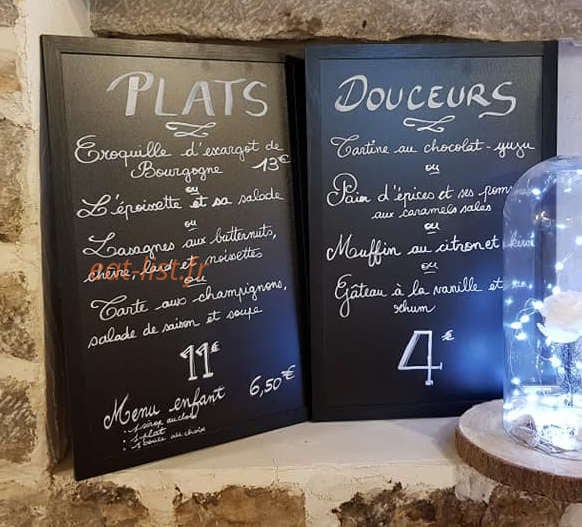 PLATS
Croquille d'escargot de
Bourgogne 13€
ou
L'époissette et sa salade
ou
Lasagnes aux butternuts,
chèvre, lard et noisettes
eat-list.fr
ou
Tarte aux champignons,
salade de saison et soupe
11€
Menu enfant 6,50€
: 1 sirop au choix
: 1 plat
: 1 douce au choix
DOUCEURS
Tartine au chocolat-yuzu
ou
Pain d'épices et ses pom
aux caramels salés
ou
Muffin au citron et
ou
Gâteau à la vanille et
rhum
4€